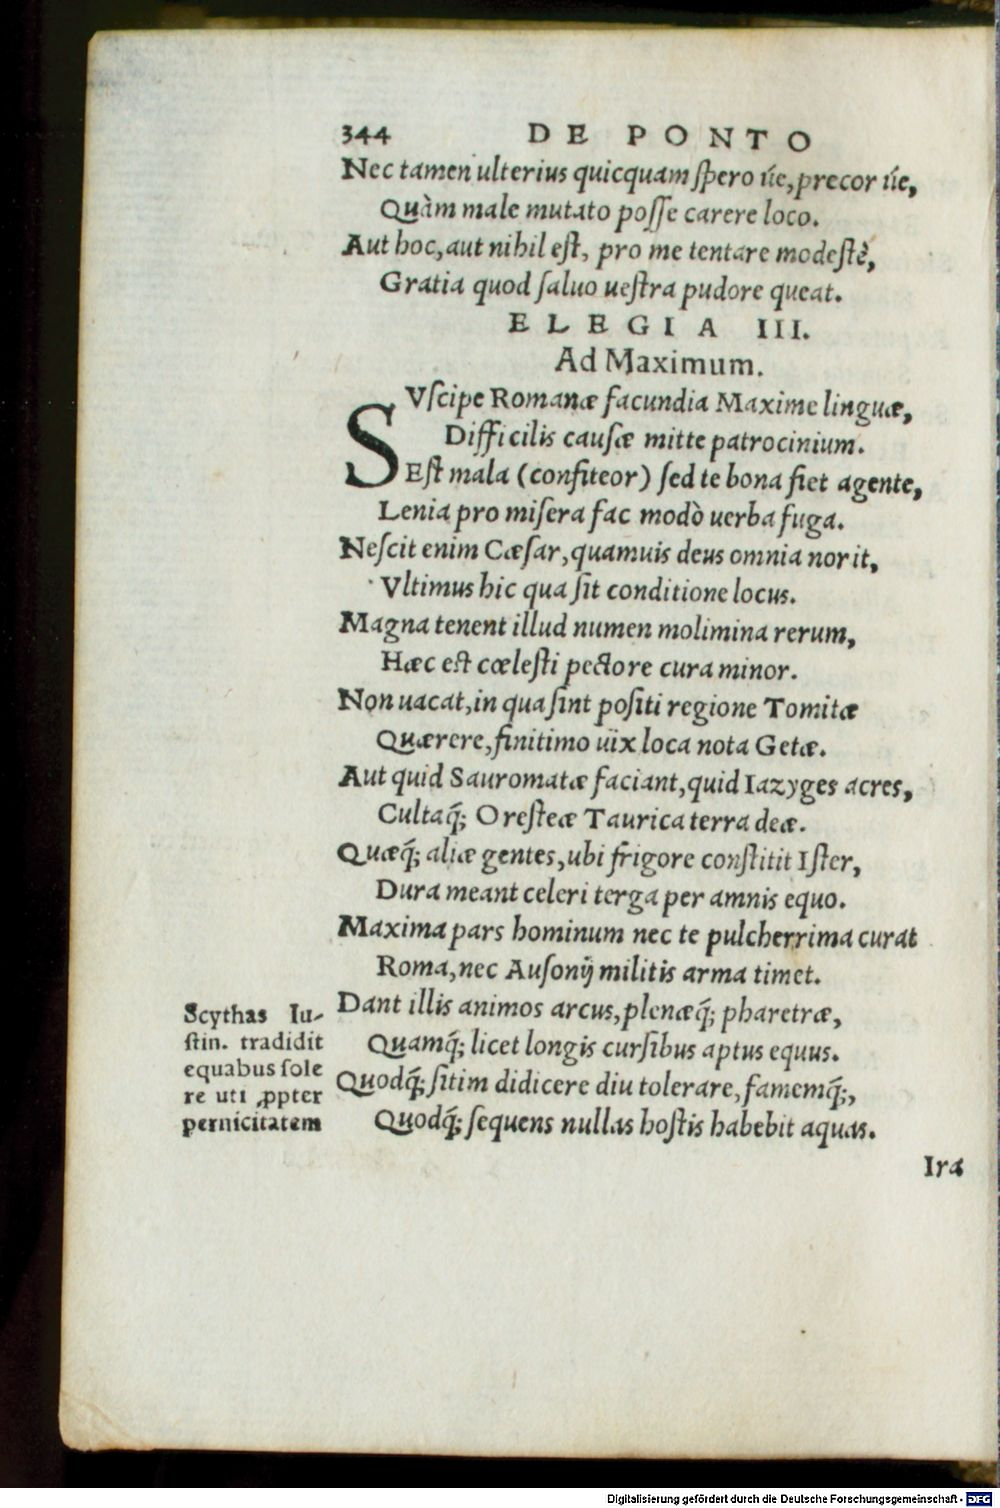 344 DE PONTO
Nec tamen ulterius quicquam spero úe, precor úe,
Quàm male mutato posse carere loco.
Aut hoc, aut nihil est, pro me tentare modestè,
Gratia quod saluo uestra pudore queat.
ELEGIA III.
Ad Maximum.
SVscipe Romanæ facundia Maxime linguæ,
Difficilis causæ mitte patrocinium.
Est mala (confiteor) sed te bona fiet agente,
Lenia pro misera fac modò uerba fuga.
Nescit enim Cæsar, quamuis deus omnia norit,
Vltimus hic qua sit conditione locus.
Magna tenent illud numen molimina rerum,
Hæc est cœlesti pectore cura minor.
Non uacat, in qua sint positi regione Tomitæ
Quærere, finitimo uix loca nota Getæ.
Aut quid Sauromatæ faciant, quid Iazyges acres,
Cultaq́; Oresteæ Taurica terra deæ.
Quæq́; aliæ gentes, ubi frigore constitit Ister,
Dura meant celeri terga per amnis equo.
Maxima pars hominum nec te pulcherrima curat
Roma, nec Ausonij militis arma timet.
Dant illis animos arcus, plenæq́; pharetræ,
Quamq́; licet longis cursibus aptus equus.
Quodq́; sitim didicere diu tolerare, famemq́;,
Quodq́; sequens nullas hostis habebit aquas.
Scythas Iu-
stin. tradidit
equabus sole
re uti ꝓpter
pernicitatem
Ira
Digitalisierung gefördert durch die Deutsche Forschungsgemeinschaft - DFG